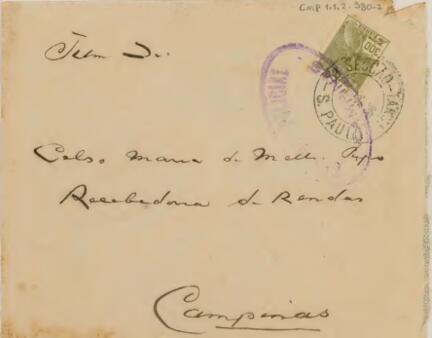 CMP 1.1.2.380-2
Illmo Sr.
SECÇÃO
S. PAULO
POLICIAL
Celso Maria de Mello Pupo
Recebedoria de Rendas
Campinas